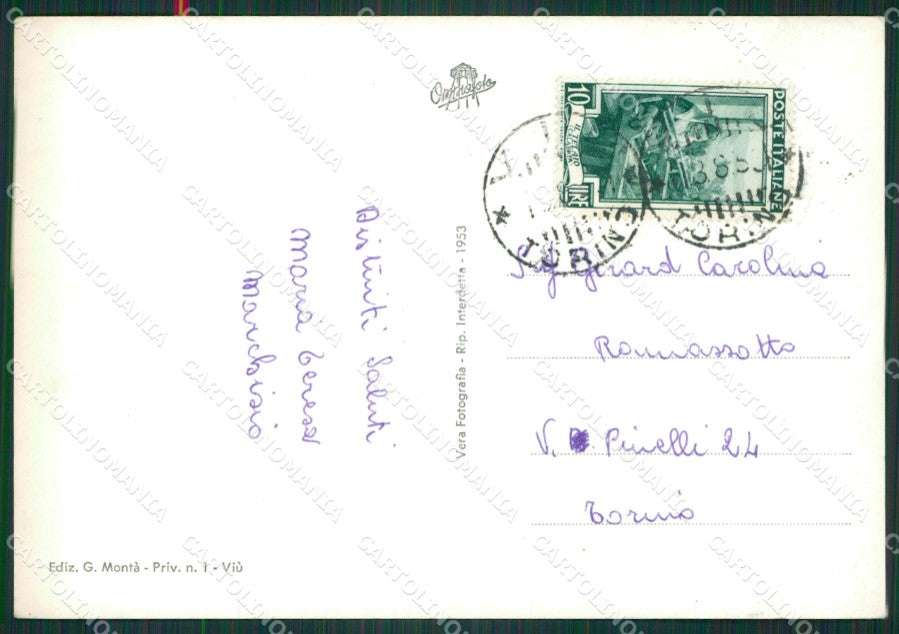 Distinti Saluti
Maria Teresa
Marchisio
Vera Fotografia - Rip. Interdetta - 1953
Ediz. G. Montà - Priv. n. 1 - Viù
10 LIRE
POSTE ITALIANE
TORINO
TORINO
Sig. Gerard Carolina
Romassotto
V. Pinelli 24
Torino
CARTOLINOMANIA